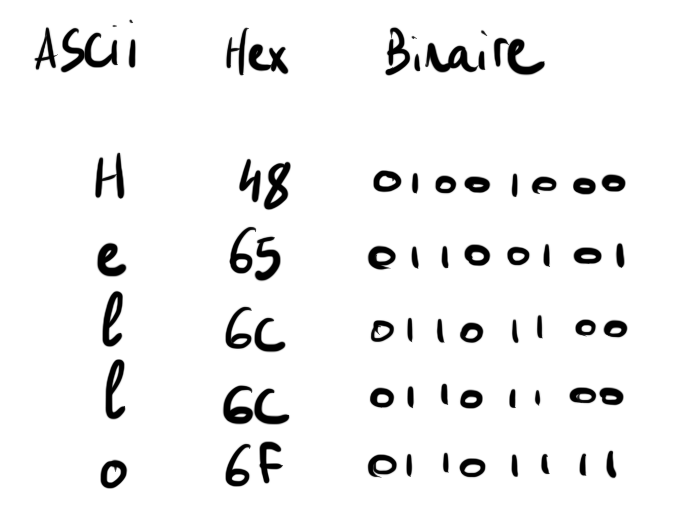 ASCii Hex Binaire
H 48 01001000
e 65 01100101
l 6C 01101100
l 6C 01101100
o 6F 01101111